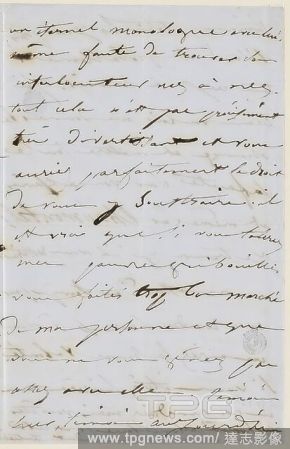 un éternel monologue avec lui
même faute de trouver son
interlocuteur nez à nez.
tout cela n'est pas précisément
très divertissant et vous
auriez parfaitement le droit
de vous y soustraire : il
est vrai que si vous
mes pauvres gribouillis
vous faites trop bon marché
de ma personne et que
vous ne vous gênez pas
assez avec elle
TPG
www.tpgnews.com / 達志影像